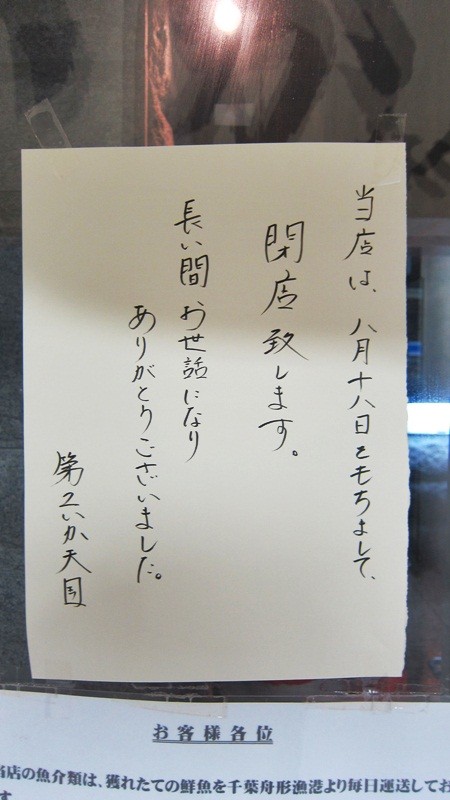 当店は、八月十八日をもちまして、
閉店致します。
長い間お世話になり
ありがとうございました。
第2いか天国
お客様各位
当店の魚介類は、獲れたての鮮魚を千葉舟形漁港より毎日運送してお
す。